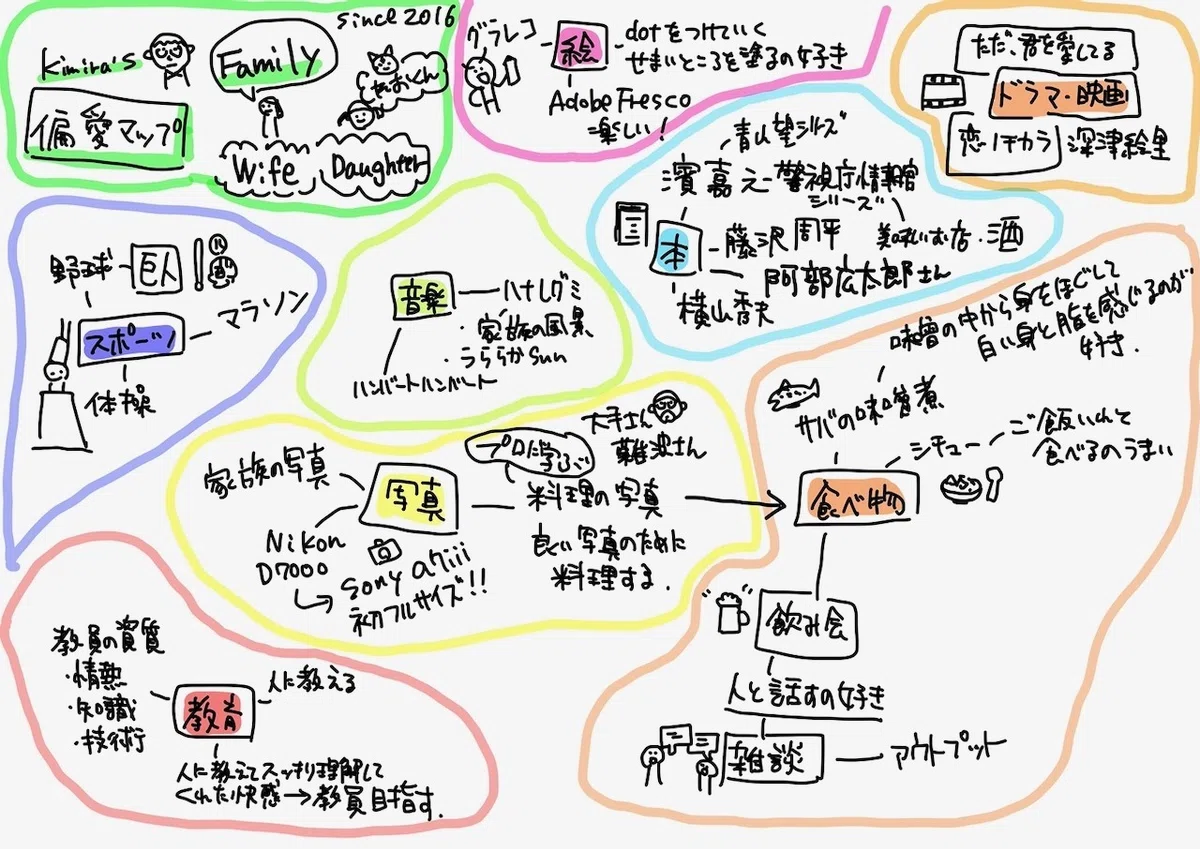 Kimira's
偏愛マップ
since 2016
Family
Wife
Daughter
グラレコ
絵
dotをつけていく
せまいところを塗るの好き
Adobe Fresco
楽しい!
ただ、君を愛してる
ドラマ・映画
恋ノチカラ
深津絵里
青山望シリーズ
濱 嘉之 ー 警視庁情報官
シリーズ
本
藤沢 周平
美味しいお店・酒
阿部広太郎さん
横山秀夫
野球
巨人
スポーツ
マラソン
体操
音楽
ハナレグミ
・家族の風景
・うららかsun
ハンバートハンバート
家族の写真
写真
プロに学ぶ
大手さん
難波さん
料理の写真
良い写真のために
料理する.
Nikon
D7000
sony α7iii
初フルサイズ!!
味噌の中から身をほぐして
白い身と脂を感じるのが
好き.
サバの味噌煮
シチュー
ご飯いれて
食べるのうまい
食べ物
飲み会
人と話すの好き
雑談
アウトプット
教員の資質
・情熱
・知識
・技術
教育
人に教える
人に教えてスッキリ理解して
くれた快感→教員目指す.